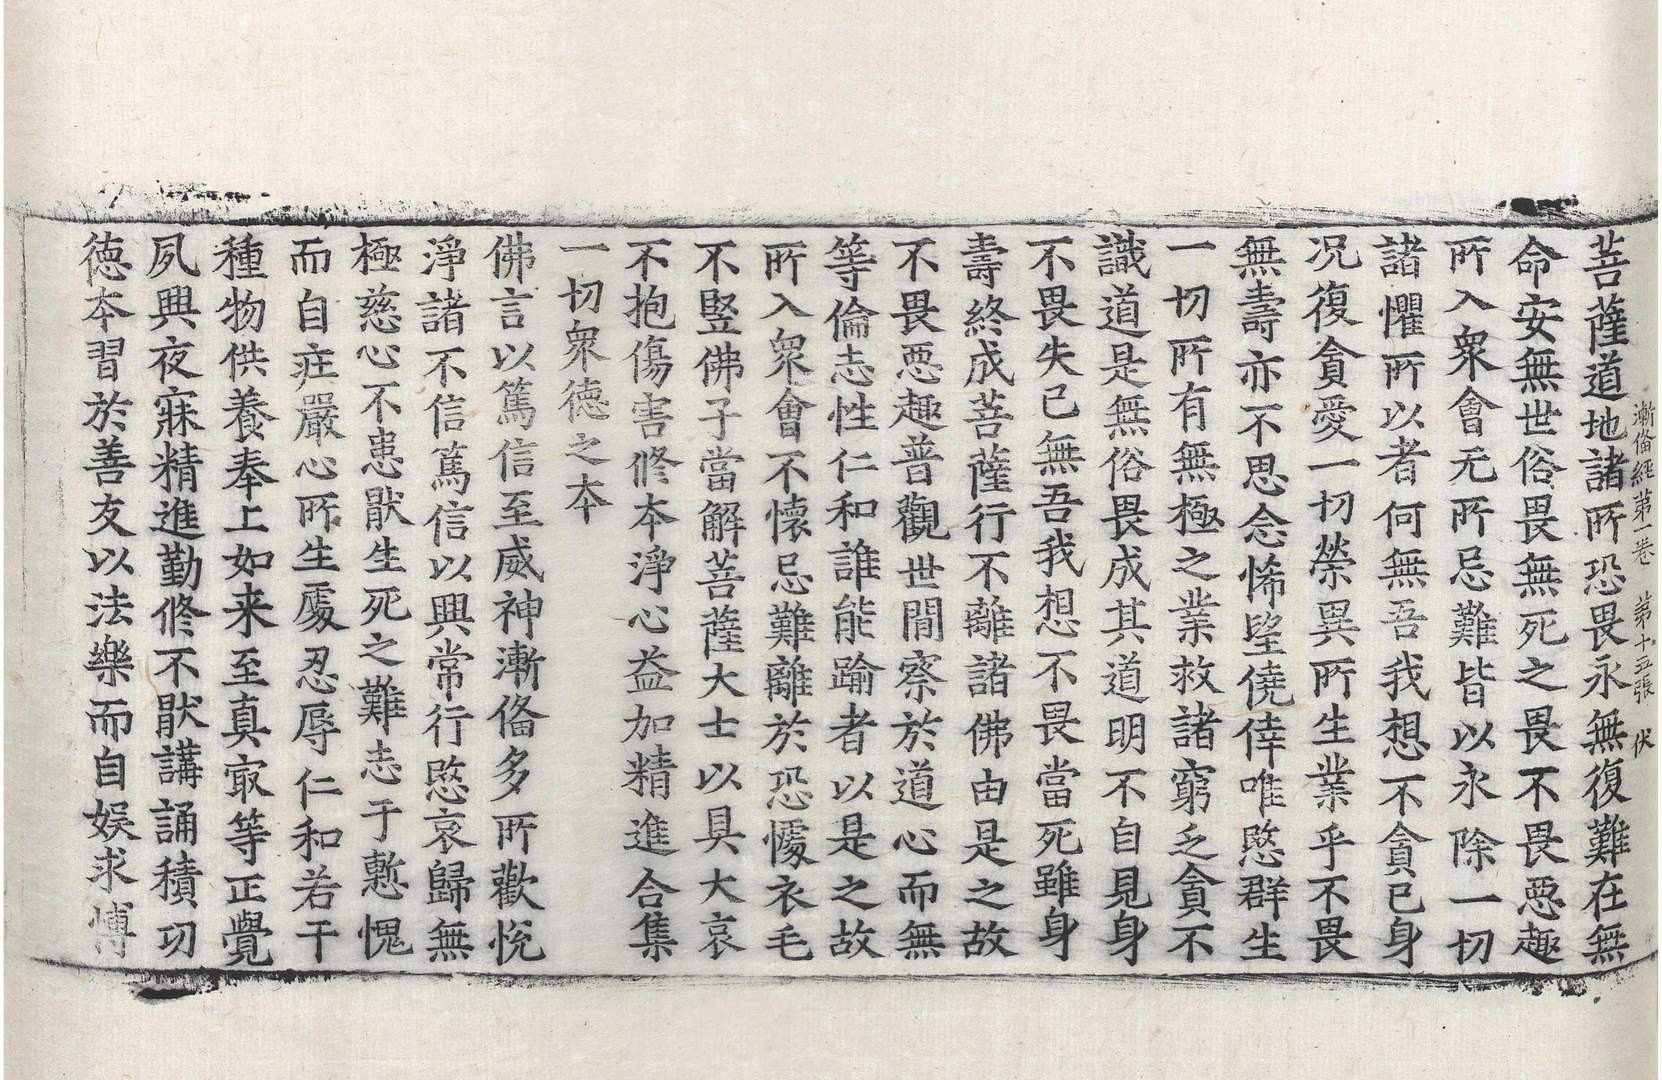 漸俻經第一卷　第十五張　伏
菩薩道地諸所恐畏永無復難在無
命安無世俗畏無死之畏不畏惡趣
所入衆會无所忌難皆以永除一切
諸懼所以者何無吾我想不貪已身
况復貪愛一切榮異所生業乎不畏
無壽亦不思念悕望僥倖唯愍群生
一切所有無極之業救諸窮乏貪不
識道是無俗畏成其道明不自見身
不畏失已無吾我想不畏當死雖身
壽終成菩薩行不離諸佛由是之故
不畏惡趣普觀世間察於道心而無
等倫志性仁和誰能踰者以是之故
所入衆會不懷忌難離於恐懅衣毛
不竪佛子當解菩薩大士以具大哀
不抱傷害修本淨心益加精進合集
一切衆德之本
佛言以篤信至威神漸俻多所歡悅
淨諸不信篤信以興常行愍哀歸無
極慈心不患猒生死之難志于慙愧
而自庄嚴心所生處忍辱仁和若干
種物供養奉上如来至真㝡等正覺
夙興夜寐精進勤修不猒講誦積功
德本習於善友以法樂而自娛求博